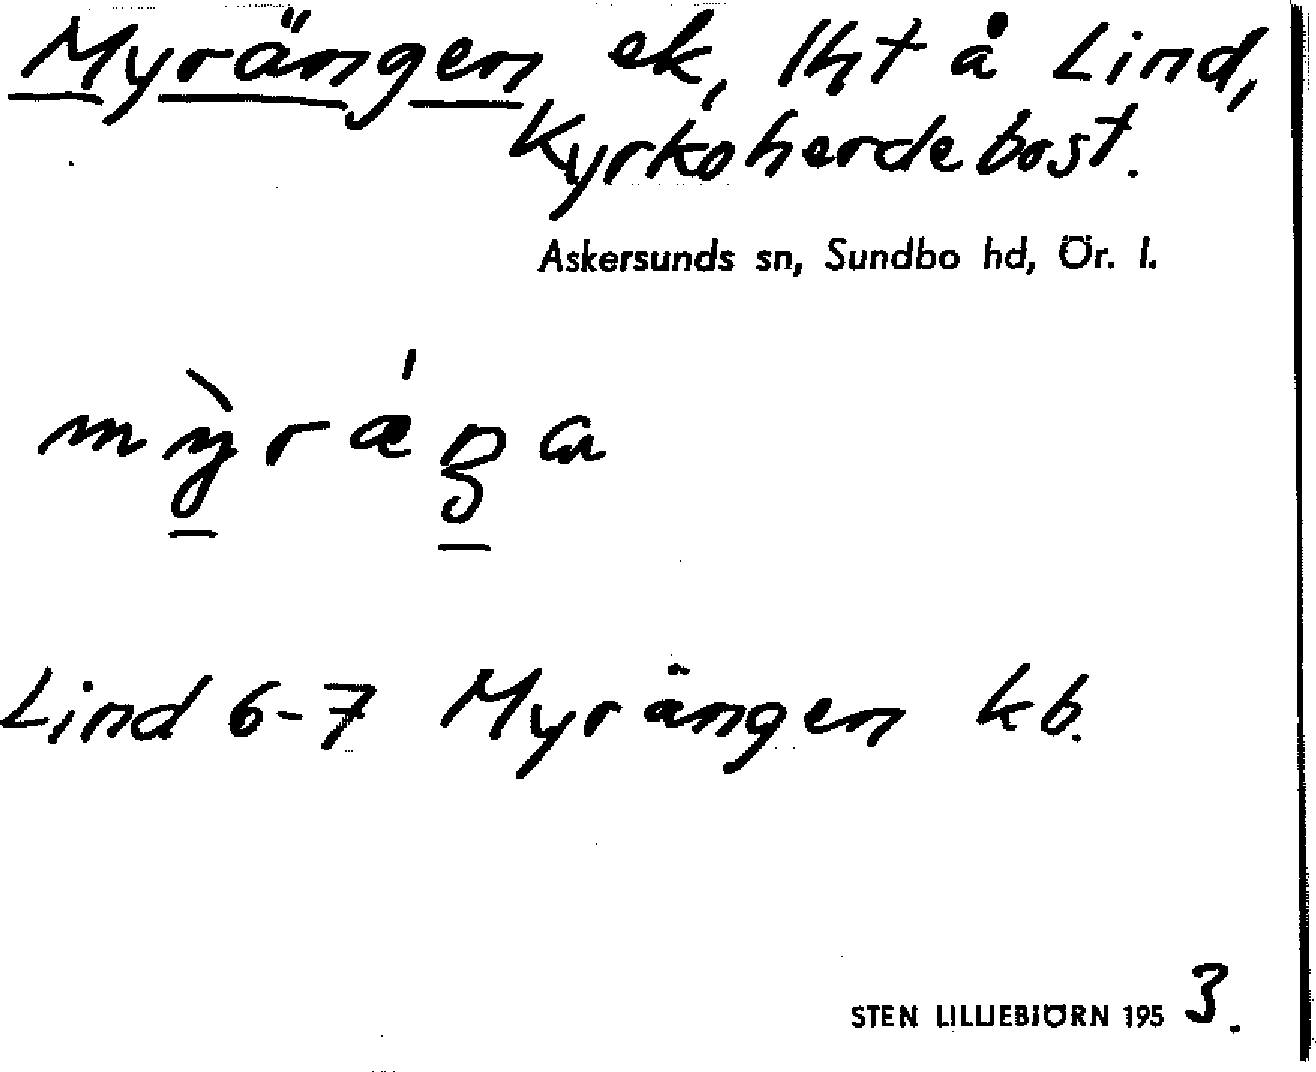 Myrängen ek, lht å Lind,
Kyrkoherdebost.
Askersunds sn, Sundbo hd, Ör. l.
Lind 6-7 Myrängen kb.
STEN LILLIEBIÖRN 1953.